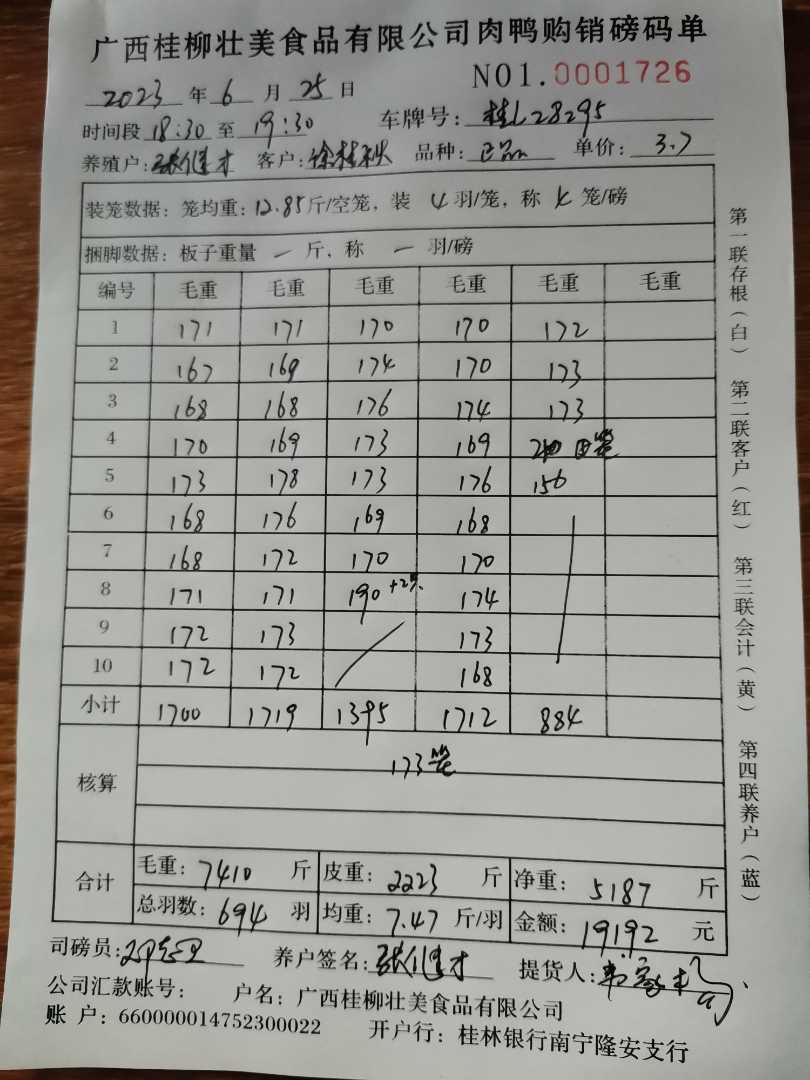 广西桂柳壮美食品有限公司肉鸭购销磅码单
NO1.0001726
2023 年 6 月 25 日
时间段 18:30 至 19:30 车牌号: 桂L28295
养殖户: 张继才 客户: 徐桂秋 品种: 正品 单价: 3.7
装笼数据: 笼均重: 12.85 斤/空笼, 装 4 羽/笼, 称 4 笼/磅
捆脚数据: 板子重量 一 斤, 称 一 羽/磅
编号 毛重 毛重 毛重 毛重 毛重 毛重
1 171 171 170 170 172
2 167 169 174 170 173
3 168 168 176 174 173
4 170 169 173 169 笼
5 173 178 173 176 156
6 168 176 169 168
7 168 172 170 170
8 171 171 190 +2只 174
9 172 173 173
10 172 172 168
小计 1700 1719 1395 1712 884
核算 173笼
合计 毛重: 7410 斤 皮重: 2223 斤 净重: 5187 斤
总羽数: 694 羽 均重: 7.47 斤/羽 金额: 19192 元
司磅员: 养户签名: 张继才 提货人:
公司汇款账号: 户名: 广西桂柳壮美食品有限公司
账 户: 660000014752300022 开户行: 桂林银行南宁隆安支行
第一联存根(白) 第二联客户(红) 第三联会计(黄) 第四联养户(蓝)